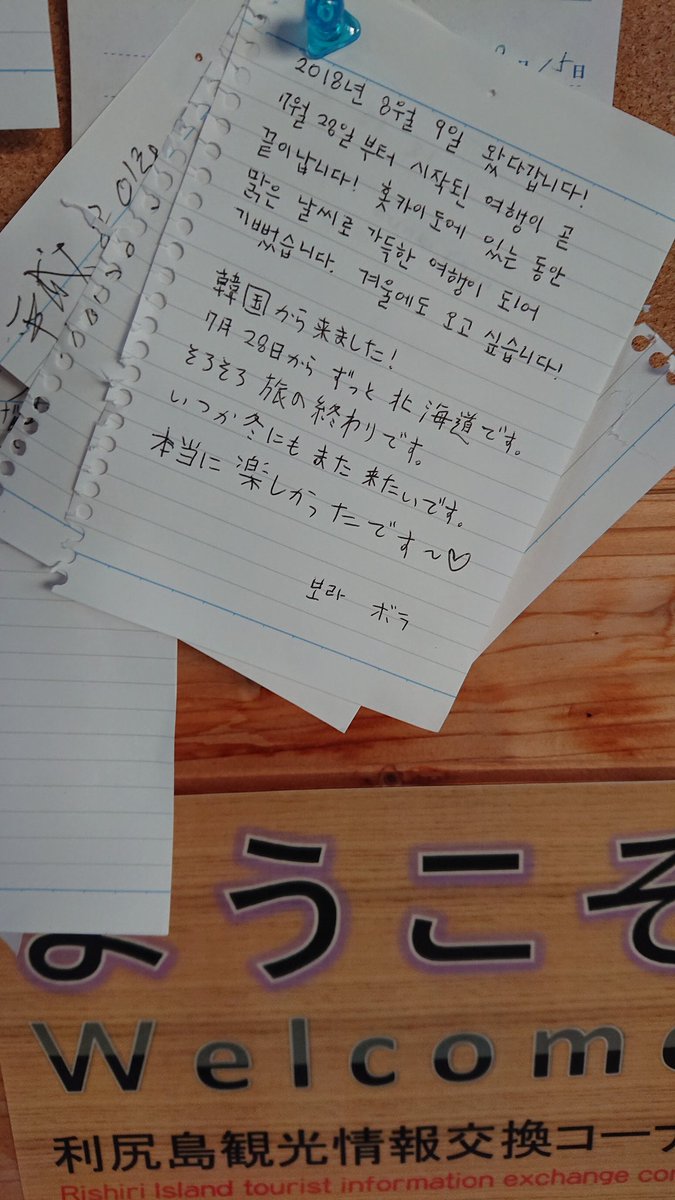 5日
2018년 8월 9일 왔다갑니다!
7월 28일부터 시작된 여행이 곧
끝이납니다! 홋카이도에 있는 동안
맑은 날씨로 가득한 여행이 되어
기뻤습니다. 겨울에도 오고 싶습니다!
韓国から来ました!
7月 28日から ずっと 北海道です。
そろそろ 旅の終わりです。
いつか冬にもまた 来たいです。
本当に 楽しかったです~♡
보라 ボラ
ようこそ
Welcome
利尻島観光情報交換コー
Rishiri Island tourist information exchange co